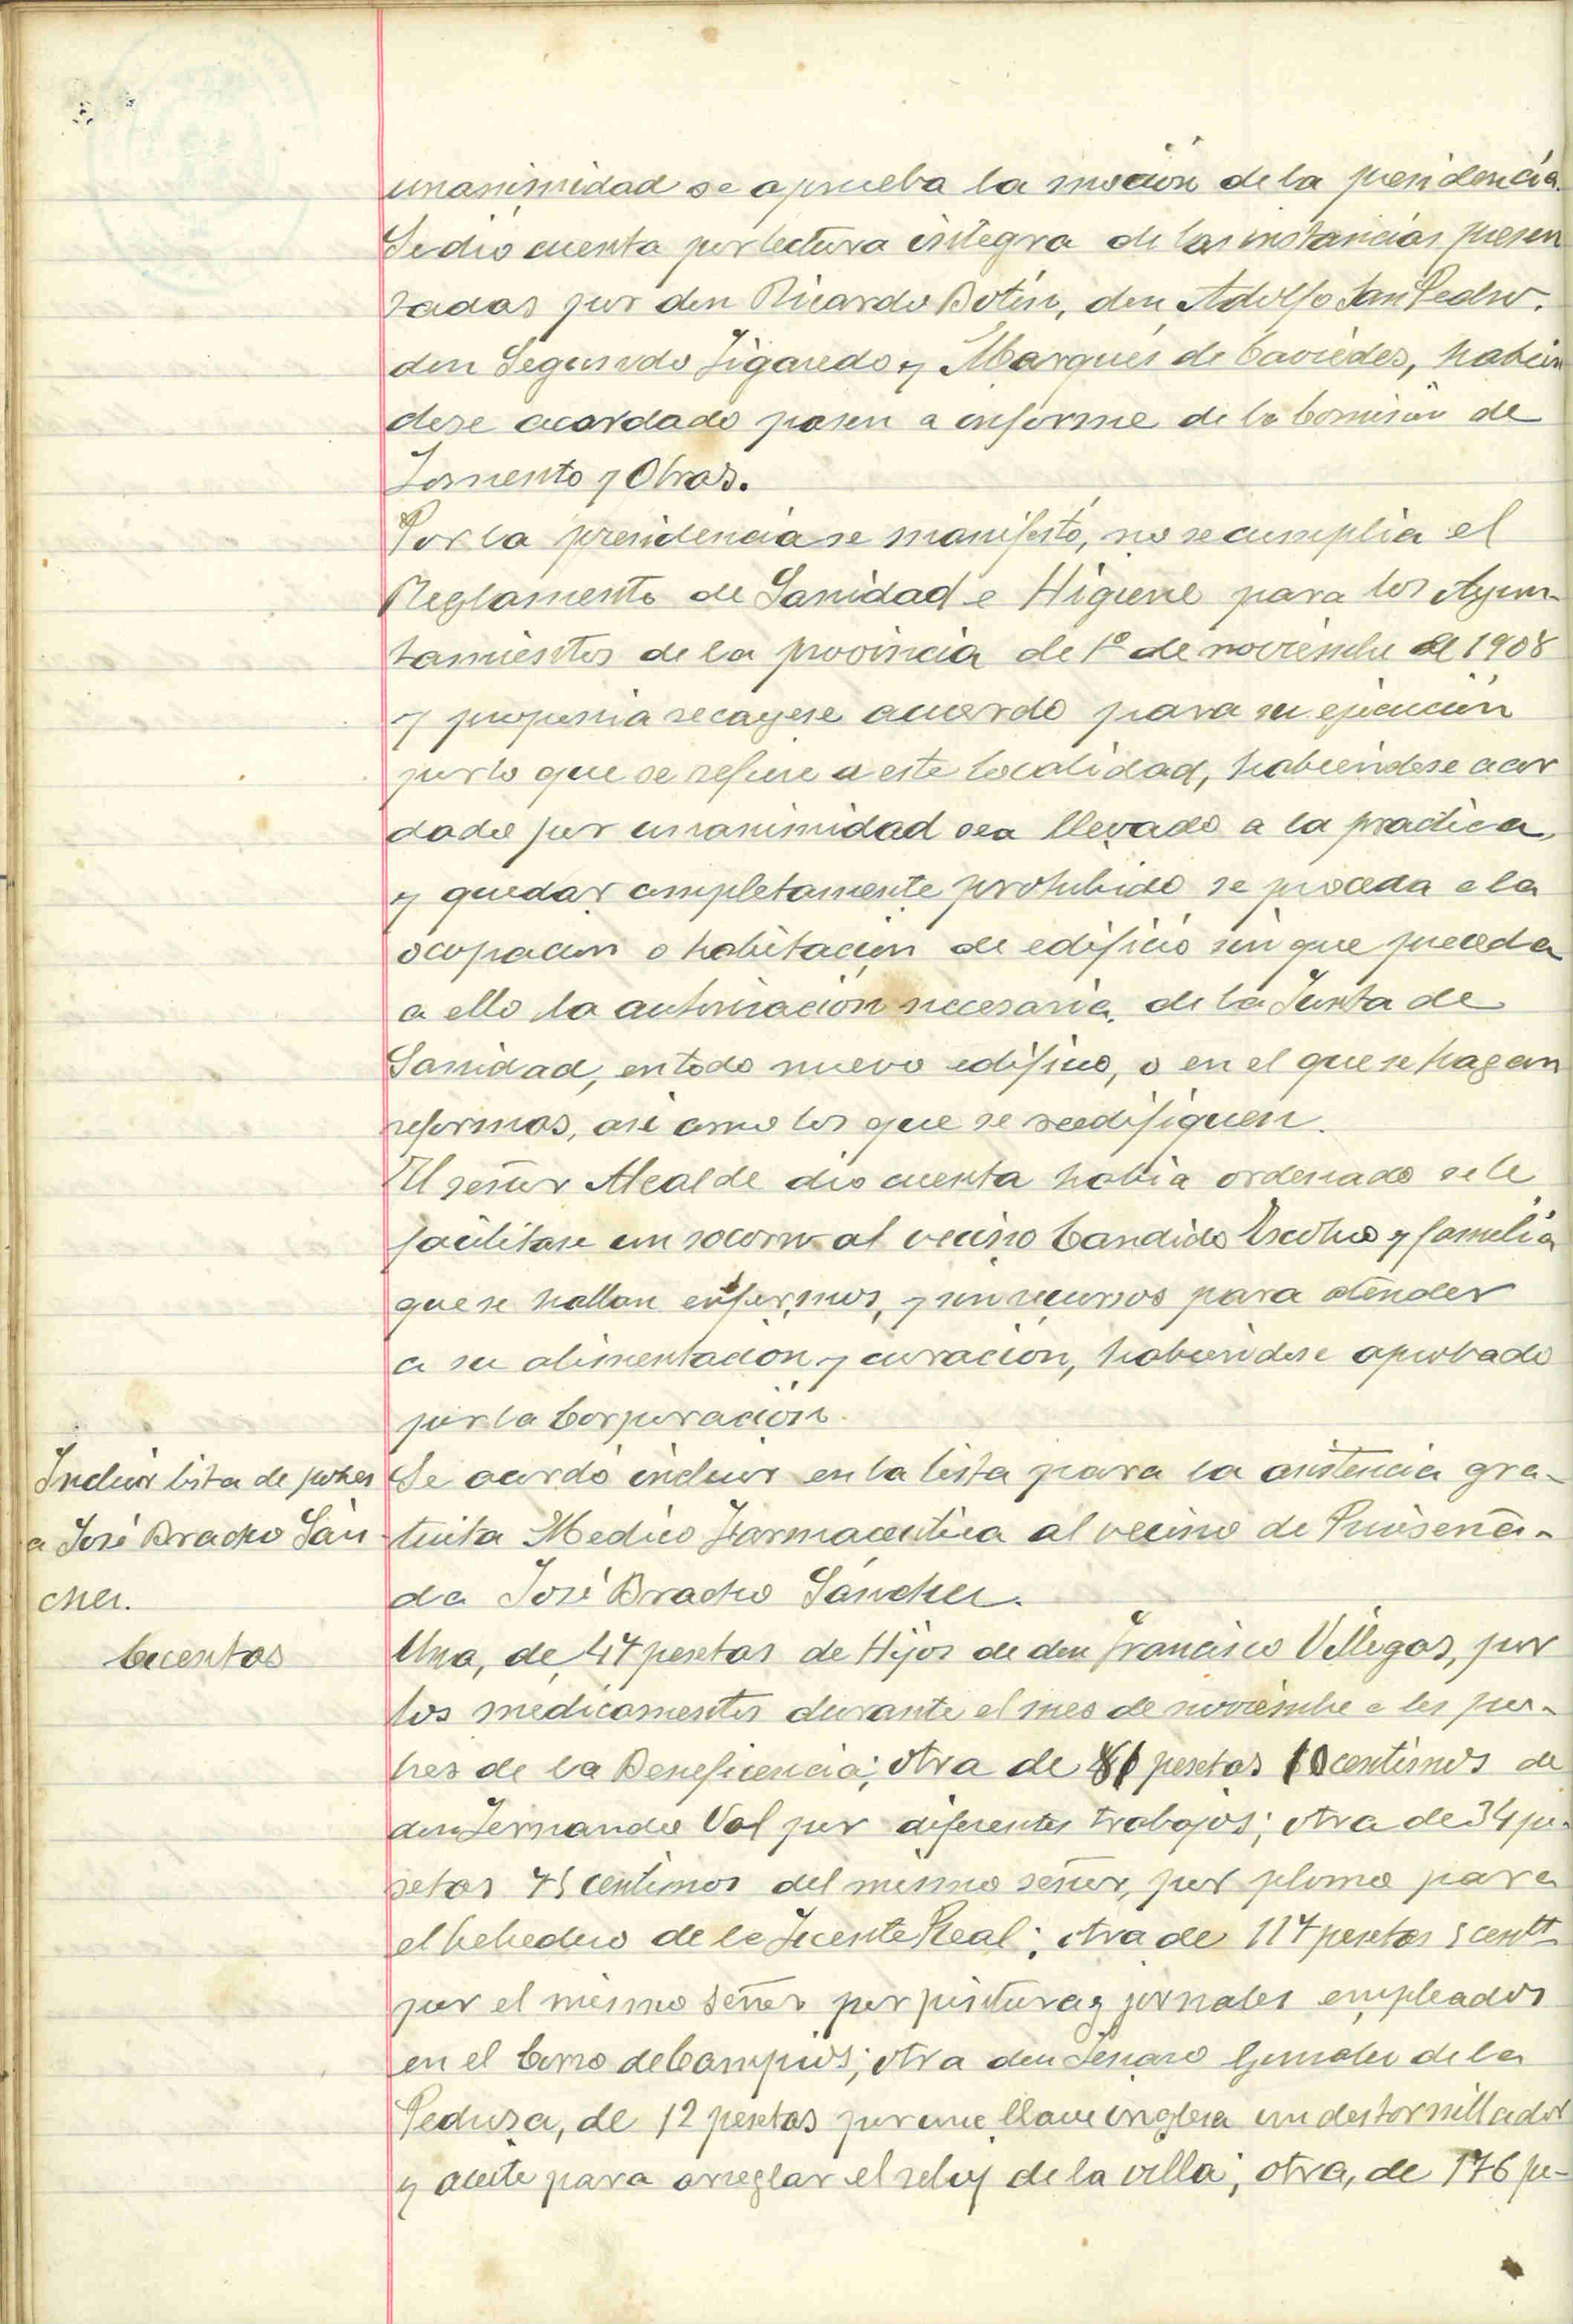 unanimidad se aprueba la moción de la presidencia.
Se dió cuenta por lectura integra de las instancias presen
tadas por don Ricardo Botín, don Adolfo San Pedro,
don Segundo Figaredo y Marqués de Caviedes, habién
dose acordado pasen a informe de la Comisión de
Fomento y Obras.
Por la presidencia se manifestó, no se cumplia el
Reglamento de Sanidad e Higiene para los Ayun-
tamientos de la provincia de 1º de noviembre de 1908
y proponia recayese acuerdo para su ejecución
por lo que se refiere a este localidad, habiendose acor
dado por unanimidad sea llevado a la practica,
y quedar completamente prohibido se proceda a la
ocupacion o habitación de edificio sin que preceda
a ello la autorización necesaria de la Junta de
Sanidad, en todo nuevo edificio, o en el que se hagan
reformas, asi como los que se reedifiquen.
El señor Alcalde dio cuenta habia ordenado se le
facilitase un socorro al vecino Candido Escobio y familia
que se hallan enfermos, y sin recursos para atender
a su alimentación y curación, habiendose aprobado
por la Corporación.
Incluir lista de pobres
a José Bracho Sán
chez.
Se acordó incluir en la lista para la asistencia gra-
tuita Medico Farmaceutica al vecino de Ruiseña-
da José Bracho Sánchez.
Cuentas
Una, de 47 pesetas de Hijos de don Francisco Villegas, por
los medicamentos durante el mes de noviembre a los po-
bres de la Beneficencia; otra de pesetas centimos de
don Fernando Val por diferentes trabajos; otra de 34 pe-
setas 75 centimos del mismo señor, por plomo para
el bebedero de la Fuente Real; otra de 117 pesetas 5 centt
por el mismo señor por pintura y jornales empleados
en el Campios; otra don Genaro González de la
Pedrosa, de 12 pesetas por una llave inglesa un destornillador
y aceite para arreglar el reloj de la villa; otra, de 176 pe-